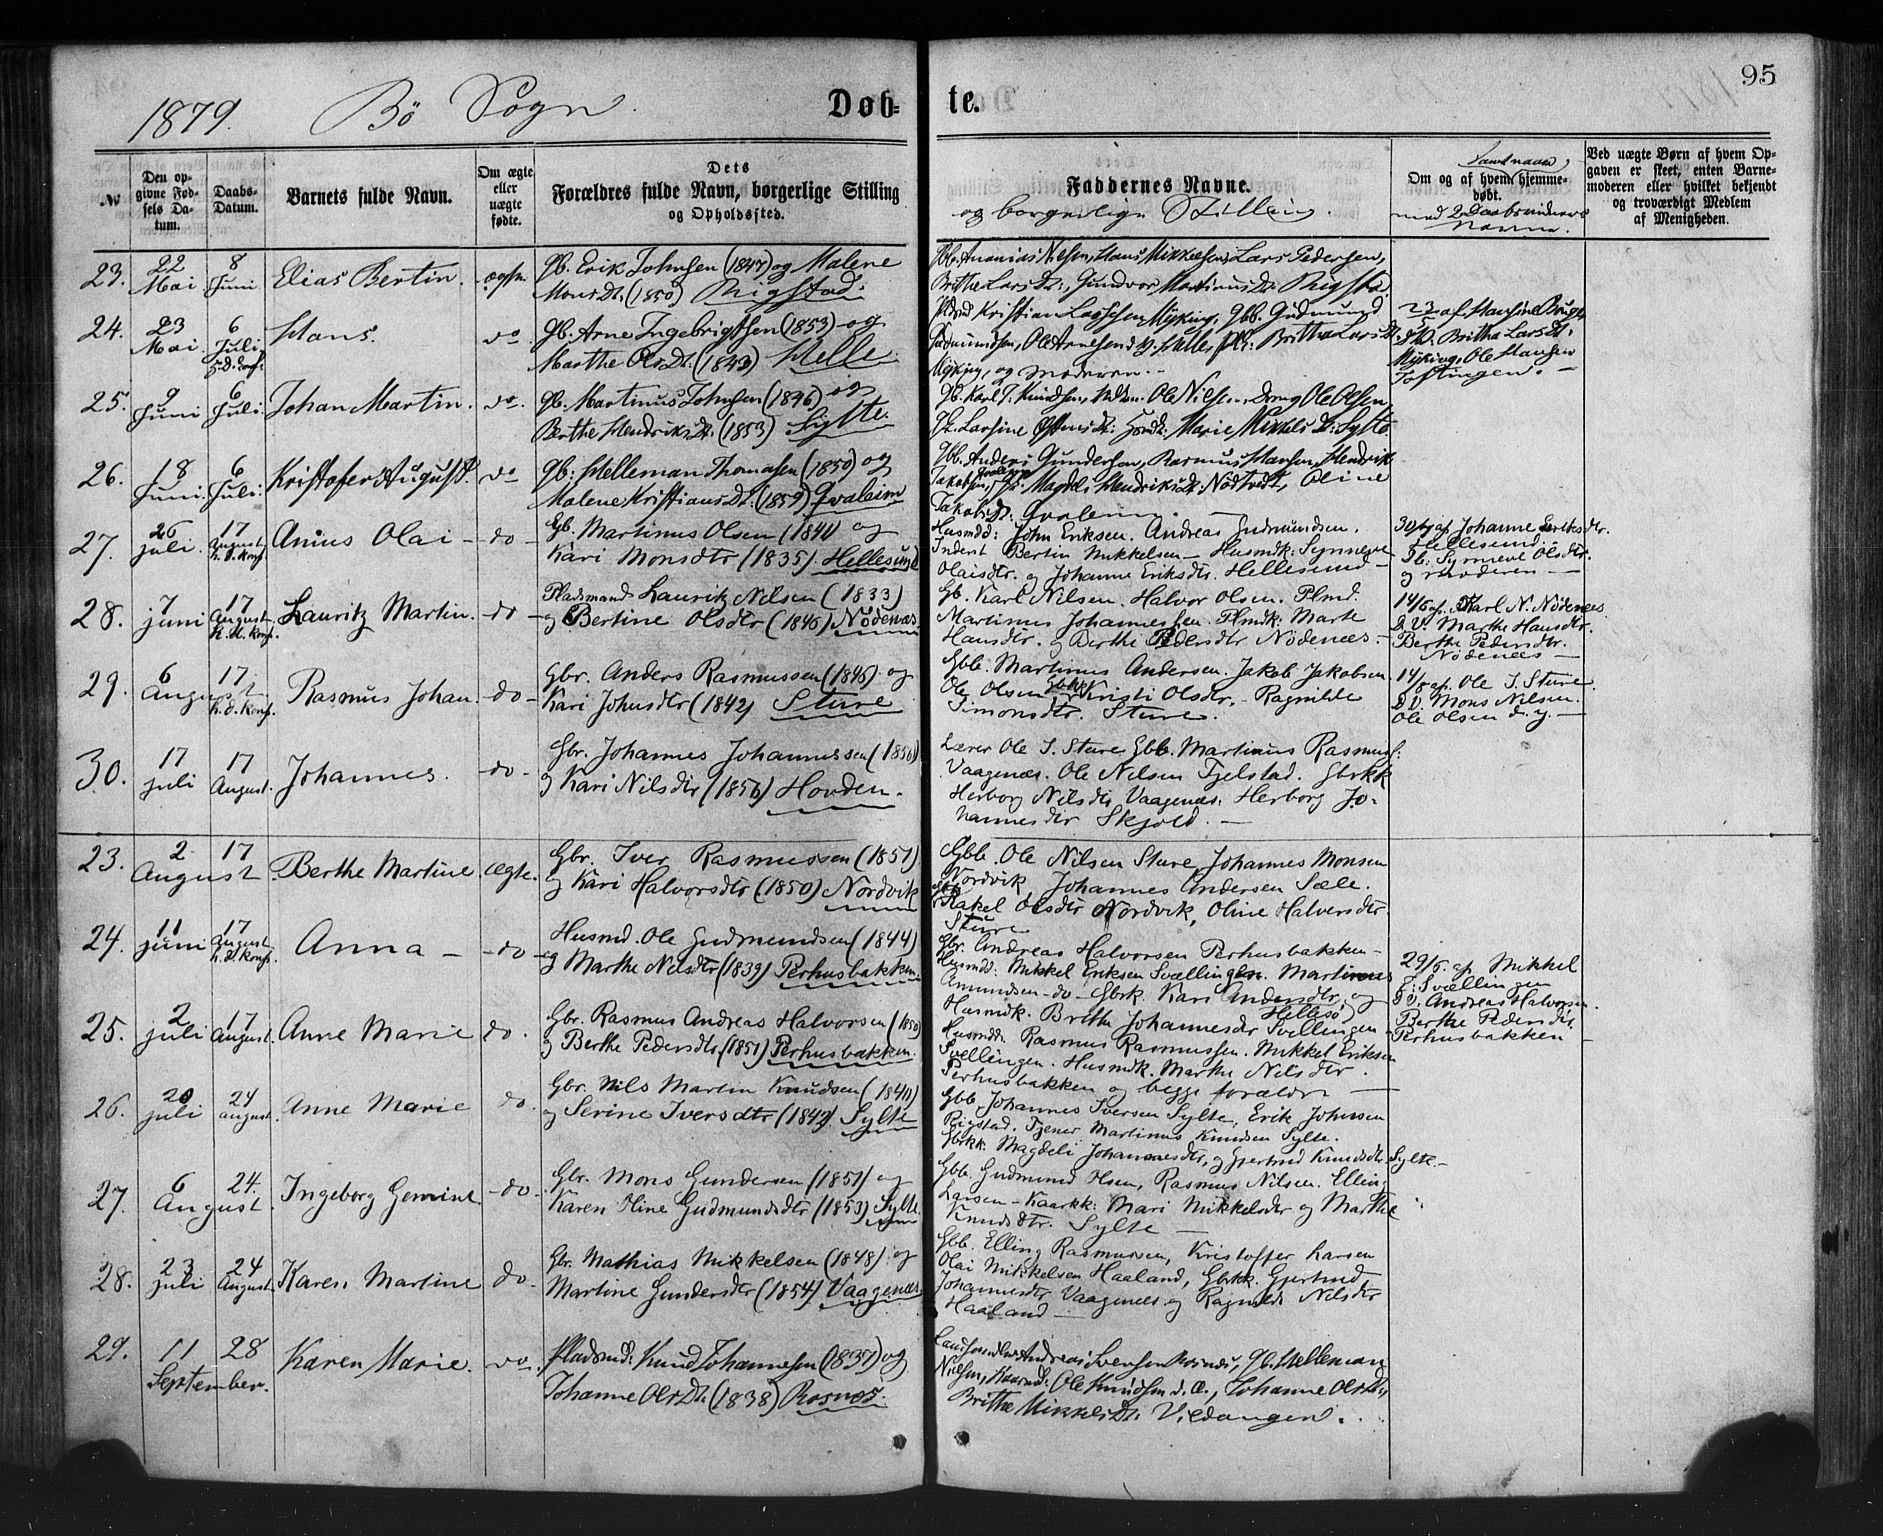 95
1879. Bö Sogn. Døb= te.
№
Den op-
givne Fød-
sels Da-
tum.
Daabs-
Datum.
Barnets fulde Navn.
Om ægte
eller
uægte
fødte.
Dets
Forældres fulde Navn, borgerlige Stilling
og Opholdssted.
Faddernes Navne.
og borgerlige Stilling.
samt naar,
Om og af hvem hjemme-
døbt.
med 2 Daabsvidners
Navne.
Ved uægte Børn af hvem Op-
gaven er skeet, enten Barne-
moderen eller hvilket bekjendt
og troværdigt Medlem
af Menigheden.
23. 22 Mai 8 Juni Elias Bertin. ægte.
Gb. Erik Johnsen (1847) og Malene
Mons Dt. (1850) Rigstad.
Gbb. Ananias Nilsen, Hans Mikkelsen, Lars Pedersen,
Brithe Lars Dt., Gundvor Martinus Dt. Rigstad.
24. 23 Mai 6 Juli Hans. do.
Gb. Arne Ingebrigtsen (1853) og
Marthe Ols Dt. (1843) Helle.
Pldsmd Kristian Lassesen Myking, Gbb. Gudmund
Gudmundsen, Ole Arnesen d. y. Helle, Britha Lars Dt.
Myking, og moderen.
23 af Hansine
Britha Lars Dt.
Myking, Ole Hansen
Toftingen.
25. 9 Juni 6 Juli. Johan Martin. do.
Gb. Martinus Johnsen (1846) og
Berthe Hendriks Dt. (1853) Sylte.
Gb. Karl J. Knudsen, Ole Nilsen, Dreng Ole Olsen,
Larsine Marie Mikkels Dt. Sylte.
26. 18 Juni. 6 Juli. Kristofer August. do
Gb. Helleman Thomasen (1850) og
Malene Kristians Dt. (1859) Qvaleim
Gbb. Anders Gundersen, Rasmus Hansen, Hendrik
Jakobsen, Magdeli Hendriks Dt. Nödtvedt, Oline
Jakobs Dt. Qvaleim.
27. 26 juli. 17 August. h. d. konf. Anius Olai - do -
Gb. Martinus Olsen (1841) og
Kari Monsdtr (1835). Hellesund
Husmdd: John Eriksen. Andreas Gudmundsen.
Inderst Bertin Mikkelsen - Husmdk: Synneve
Olaisdtr. og Johanne Eriksdtr. Hellesund -
30/7 af Johanne Eriksdtr.
Hellesund.
Synneve Olsdtr.
og moderen -
28. 7 juni 17 August h. d. konf. Lauritz Martin. - do -
Pladsmand Lauritz Nilsen (1833)
og Bertine Olsdtr (1846) Nödenæs
Gb. Karl Nilsen. Halvor Olsen. Plmd.
Martinus Johannessen. Plmdk: Marte
Hansdtr. og Berthe Pedersdtr Nödenæs -
14/6 af. Karl N. Nödenæs
D. V. Marthe Hansdtr.
Berthe Pedersdtr.
Nödenæs -
29. 6 August. 17 h. d. konf. Rasmus Johan. - do -
Gbr. Anders Rasmussen (1845) og
Kari Johnsdtr (1842) Sture
Gbb. Martinus Andersen. Jakob Jakobsen
Ole Olsen Gbrkk Kristi Olsdtr. Ragnilde
Simonsdtr. Sture.
14/8 af. Ole I. Sture.
D. V. Mons Nilsen.
Ole Olsen d. y. -
30. 17 juli 17 August. Johannes. - do -
Gbr. Johannes Johannessen (1850)
og Kari Nilsdtr (1856) Hovden.
Lærer Ole I. Sture Gbb. Martinus Rasmus:
Vaagenæs. Ole Nilsen Tjelstad. Gbrkk
Herborg Nilsdtr Vaagenæs. Herborg Jo-
hannesdtr Skjold. -
23. 2 August 17 Berthe Martine. ægte.
Gbr. Iver Rasmussen (1851)
og Kari Halvorsdtr (1850) Nordvik
Gbb. Ole Nilsen Sture, Johannes Monsen
Nordvik, Johannes Andersen Sæle.
Rakel Olsdtr Nordvik, Oline Halversdtr.
Sture
24. 11 juni 17 August h. d. konf. Anna - - do -
Husmd. Ole Gudmundsen (1844)
og Marthe Nilsdtr (1839) Perhusbakken
Gbr. Andreas Halvorsen Perhusbakken -
Husmdd: Mikkel Eriksen Svællingen. Martinus
Amundsen - do - Gbrk. Kari Andersdtr Hellesö, og
Husmdk. Brithe Johannesdtr Svellingen
29/6. af Mikkel
E. Svællingen
D V: Andreas Halvorsen.
Berthe Pedersdtr.
Perhusbakken -
25. 2 juli 17 August. Anne Marie do.
Gbr. Rasmus Andreas Halvorsen (1850)
og Berthe Pedersdtr (1851) Perhusbakken.
Husmdd: Rasmus Rasmussen. Mikkel Eriksen
Svellingen. Husmdk. Marthe Nilsdtr.
Perhusbakken og begge forældre -
26. 20 juli 24 august. Anne Marie do.
Gbr. Nils Martin Knudsen (1840)
og Serine Iversdtr (1842) Sylte
Gbb Johannes Iversen Sylte, Erik Johnsen
Rigstad. Tjener Martinus Knudsen Sylte.
Gbrkk. Magdeli Johannesdtr, og Gjertrud Knudsdtr Sylte. -
27. 6 August 24. Ingeborg Gemine - do -
Gbr. Mons Gundersen (1851) og
Karen Oline Gudmundsdtr (1853) Sylte
Gbb. Gudmund Hsen, Rasmus Nilsen. Elling
Larsen - Kaarkk: Mari Mikkelsdtr og Marthe
Knudsdtr. Sylte -
28. 23 juli 24 August. Karen Martine do -
Gbr. Mathias Mikkelsen (1848) og
Martine Gundersdtr (1854) Vaagenæs
Gbb. Elling Rasmussen, Kristoffer Larsen
Olai Mikkelsen Haaland, Gbrkk. Gjertrud
Johannesdtr Vaagenæs og Ragnilde Nilsdtr
Haaland -
29. 11 September. 28 Karen Marie. do.
Pladsmd: Knud Johannessen (1837) og
Johanne Ols Dt. (1838) Rosnæs.
Andreas Svensen Rosnæs, Gb. Helleman
Nilsen, Ole Knudsen d. æ., Johanne Ols Dt.,
Brithe Mikkels Dt. Vildangen.